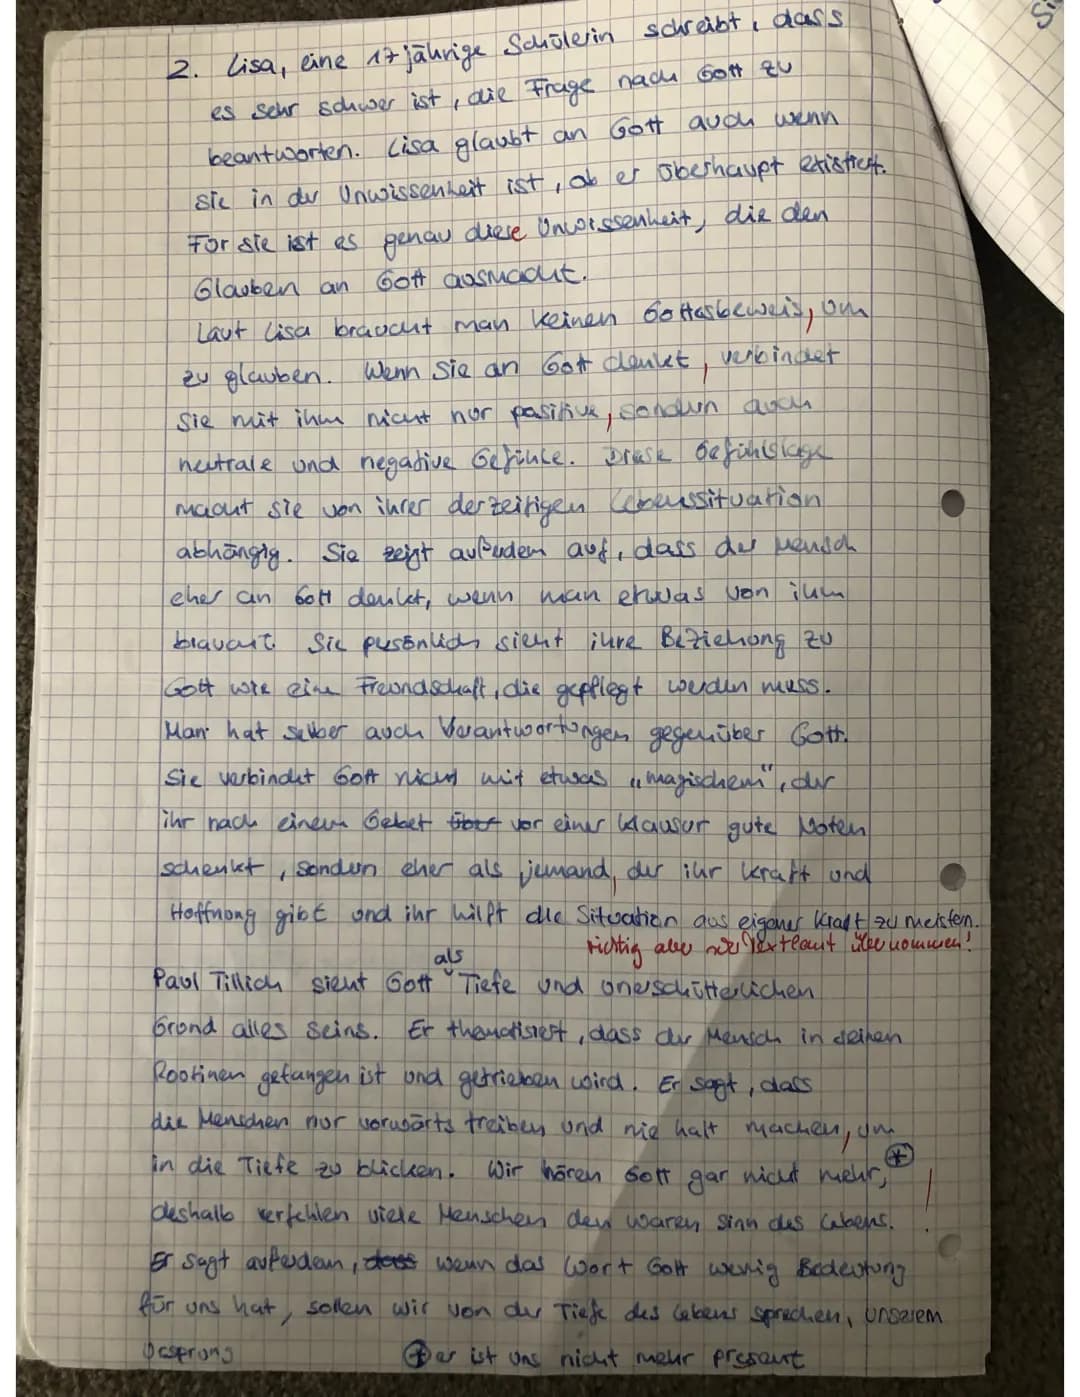 2. Lisa, eine 17 jährige Schülerin schreibt, dass
es sehr schwer ist, die Frage nach Gott zu
beantworten. Lisa glaubt an Gott auch wenn
sie in der Unwissenheit ist, ob er überhaupt existiert.
Für sie ist es genau diese Unwissenheit, die den
Glauben an Gott ausmacht.
Laut Lisa braucht man keinen Gottesbeweis, um
zu glauben. Wenn Sie an Gott denket, verbindet
Sie mit ihm nicht nur positive, sondern auch
neutrale und negative Gefühle. Diese Gefühlslage
macht sie von ihrer derzeitigen Lebenssituation
abhängig. Sie zeigt außerdem auf, dass der Mensch
eher an Gott denkt, wenn man etwas von ihm
braucht. Sie persönlich sieht ihre Beziehung zu
Gott wie eine Freundschaft, die gepflegt werden muss.
Man hat selber auch Verantwortungen gegenüber Gott.
Sie verbindet Gott nicht mit etwas „magischem", der
ihr nach einem Gebet vor einer Klausur gute Noten
schenkt, sondern eher als jemand, der ihr Kraft und
Hoffnung gibt und ihr hilft die Situation aus eigener Kraft zu meistern.
richtig aber Textlaut übernommen!
als
Paul Tillich sieht Gott Tiefe und unerschütterlichen
Grund alles Seins. Er thematisiert, dass der Mensch in seinen
Rootinen gefangen ist und getrieben wird. Er sagt, dass
die Menschen nur vorwärts treiben und nie halt machen, um
in die Tiefe zu blicken. Wir hören Gott gar nicht mehr,
deshalb verfehlen viele Menschen den waren Sinn des Lebens. !
Er sagt außerdem, dass wenn das Wort Gott wenig Bedeutung
für uns hat, sollen wir von der Tiefe des Lebens sprechen, unserem
Ursprung
er ist uns nicht mehr present